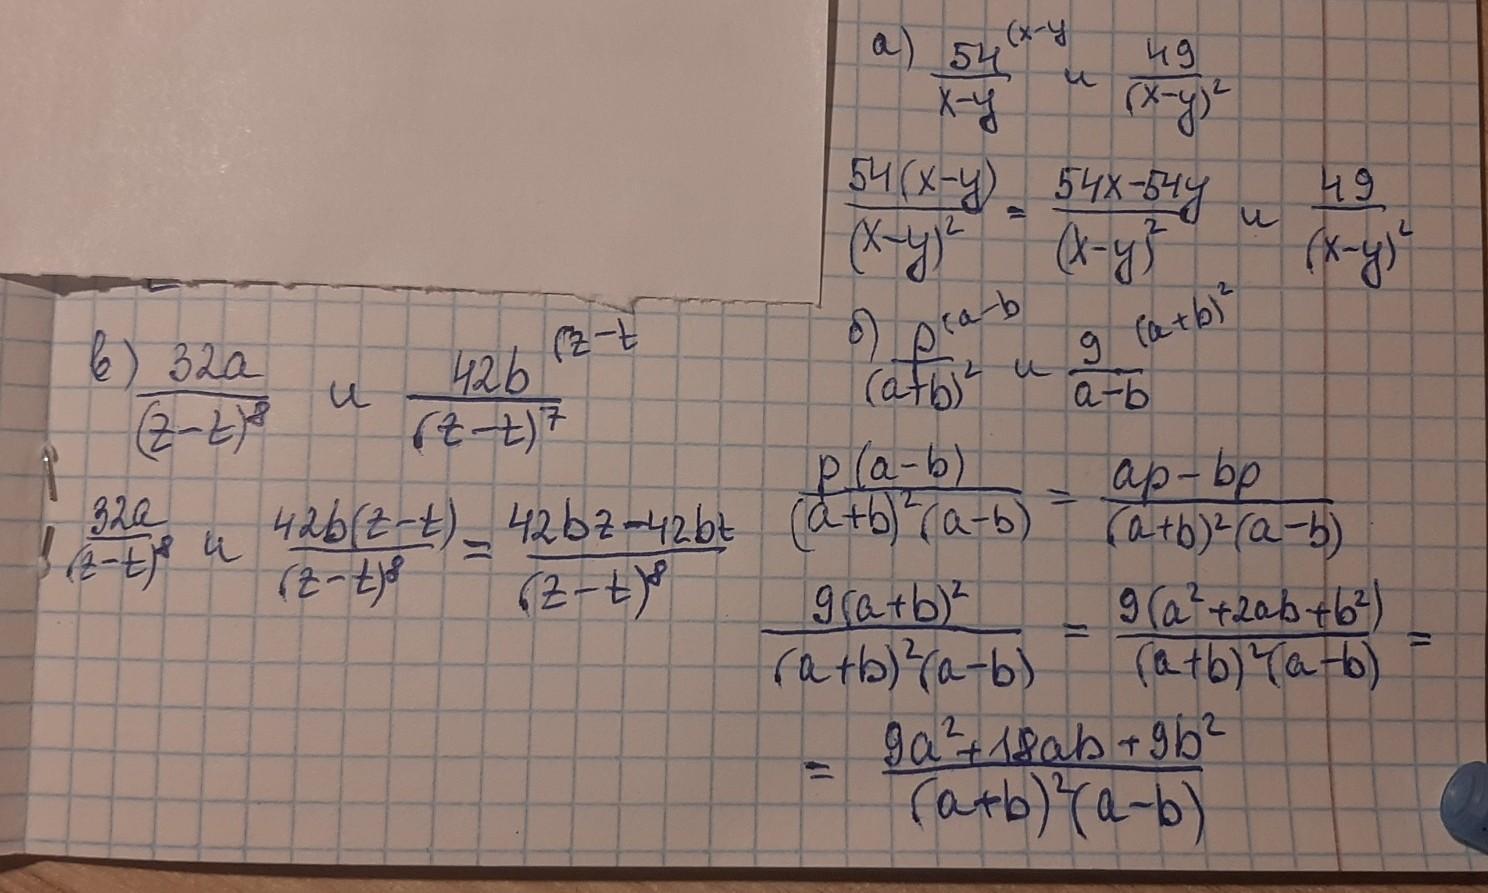 а) 54^(x-y / x-y и 49 / (x-y)²
54(x-y) / (x-y)² = 54x-54y / (x-y)² и 49 / (x-y)²
б) p^(a-b / (a+b)² и 9^(a+b)² / a-b
p(a-b) / (a+b)²(a-b) = ap-bp / (a+b)²(a-b)
9(a+b)² / (a+b)²(a-b) = 9(a²+2ab+b²) / (a+b)²(a-b) =
= 9a²+18ab+9b² / (a+b)²(a-b)
в) 32a / (z-t)⁸ и 42b^(z-t / (z-t)⁷
32a / (z-t)⁸ и 42b(z-t) / (z-t)⁸ = 42bz-42bt / (z-t)⁸